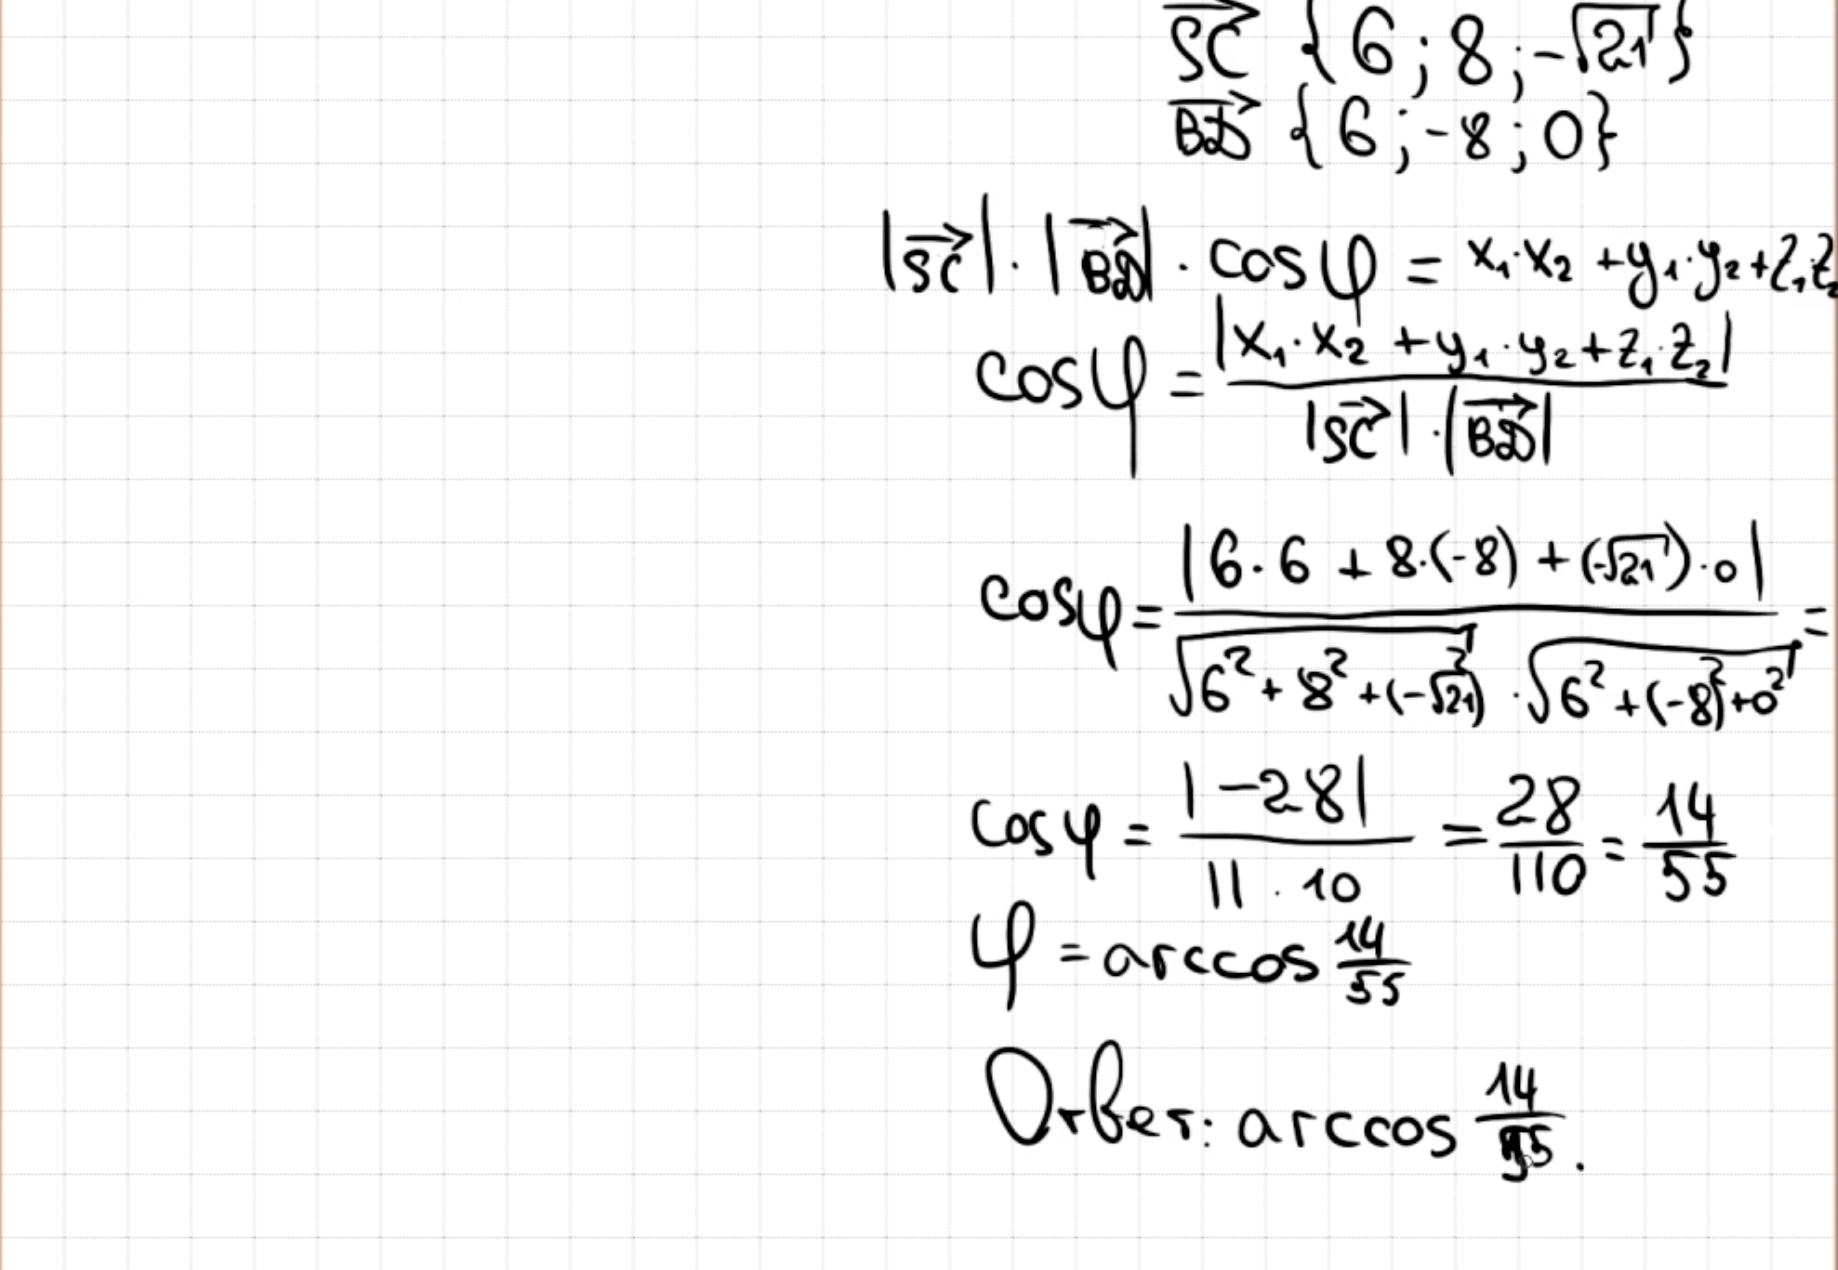 SC⃗ {6; 8; -√21}
BD⃗ {6; -8; 0}
|SC⃗| · |BD⃗| · cosφ = x₁·x₂ + y₁·y₂ + z₁·z₂
cosφ = |x₁·x₂ + y₁·y₂ + z₁·z₂| / |SC⃗| · |BD⃗|
cosφ = |6·6 + 8·(-8) + (-√21)·0| / √(6² + 8² + (-√21)²) · √(6² + (-8)² + 0²) =
cosφ = |-28| / 11 · 10 = 28/110 = 14/55
φ = arccos 14/55
Ответ: arccos 14/55.